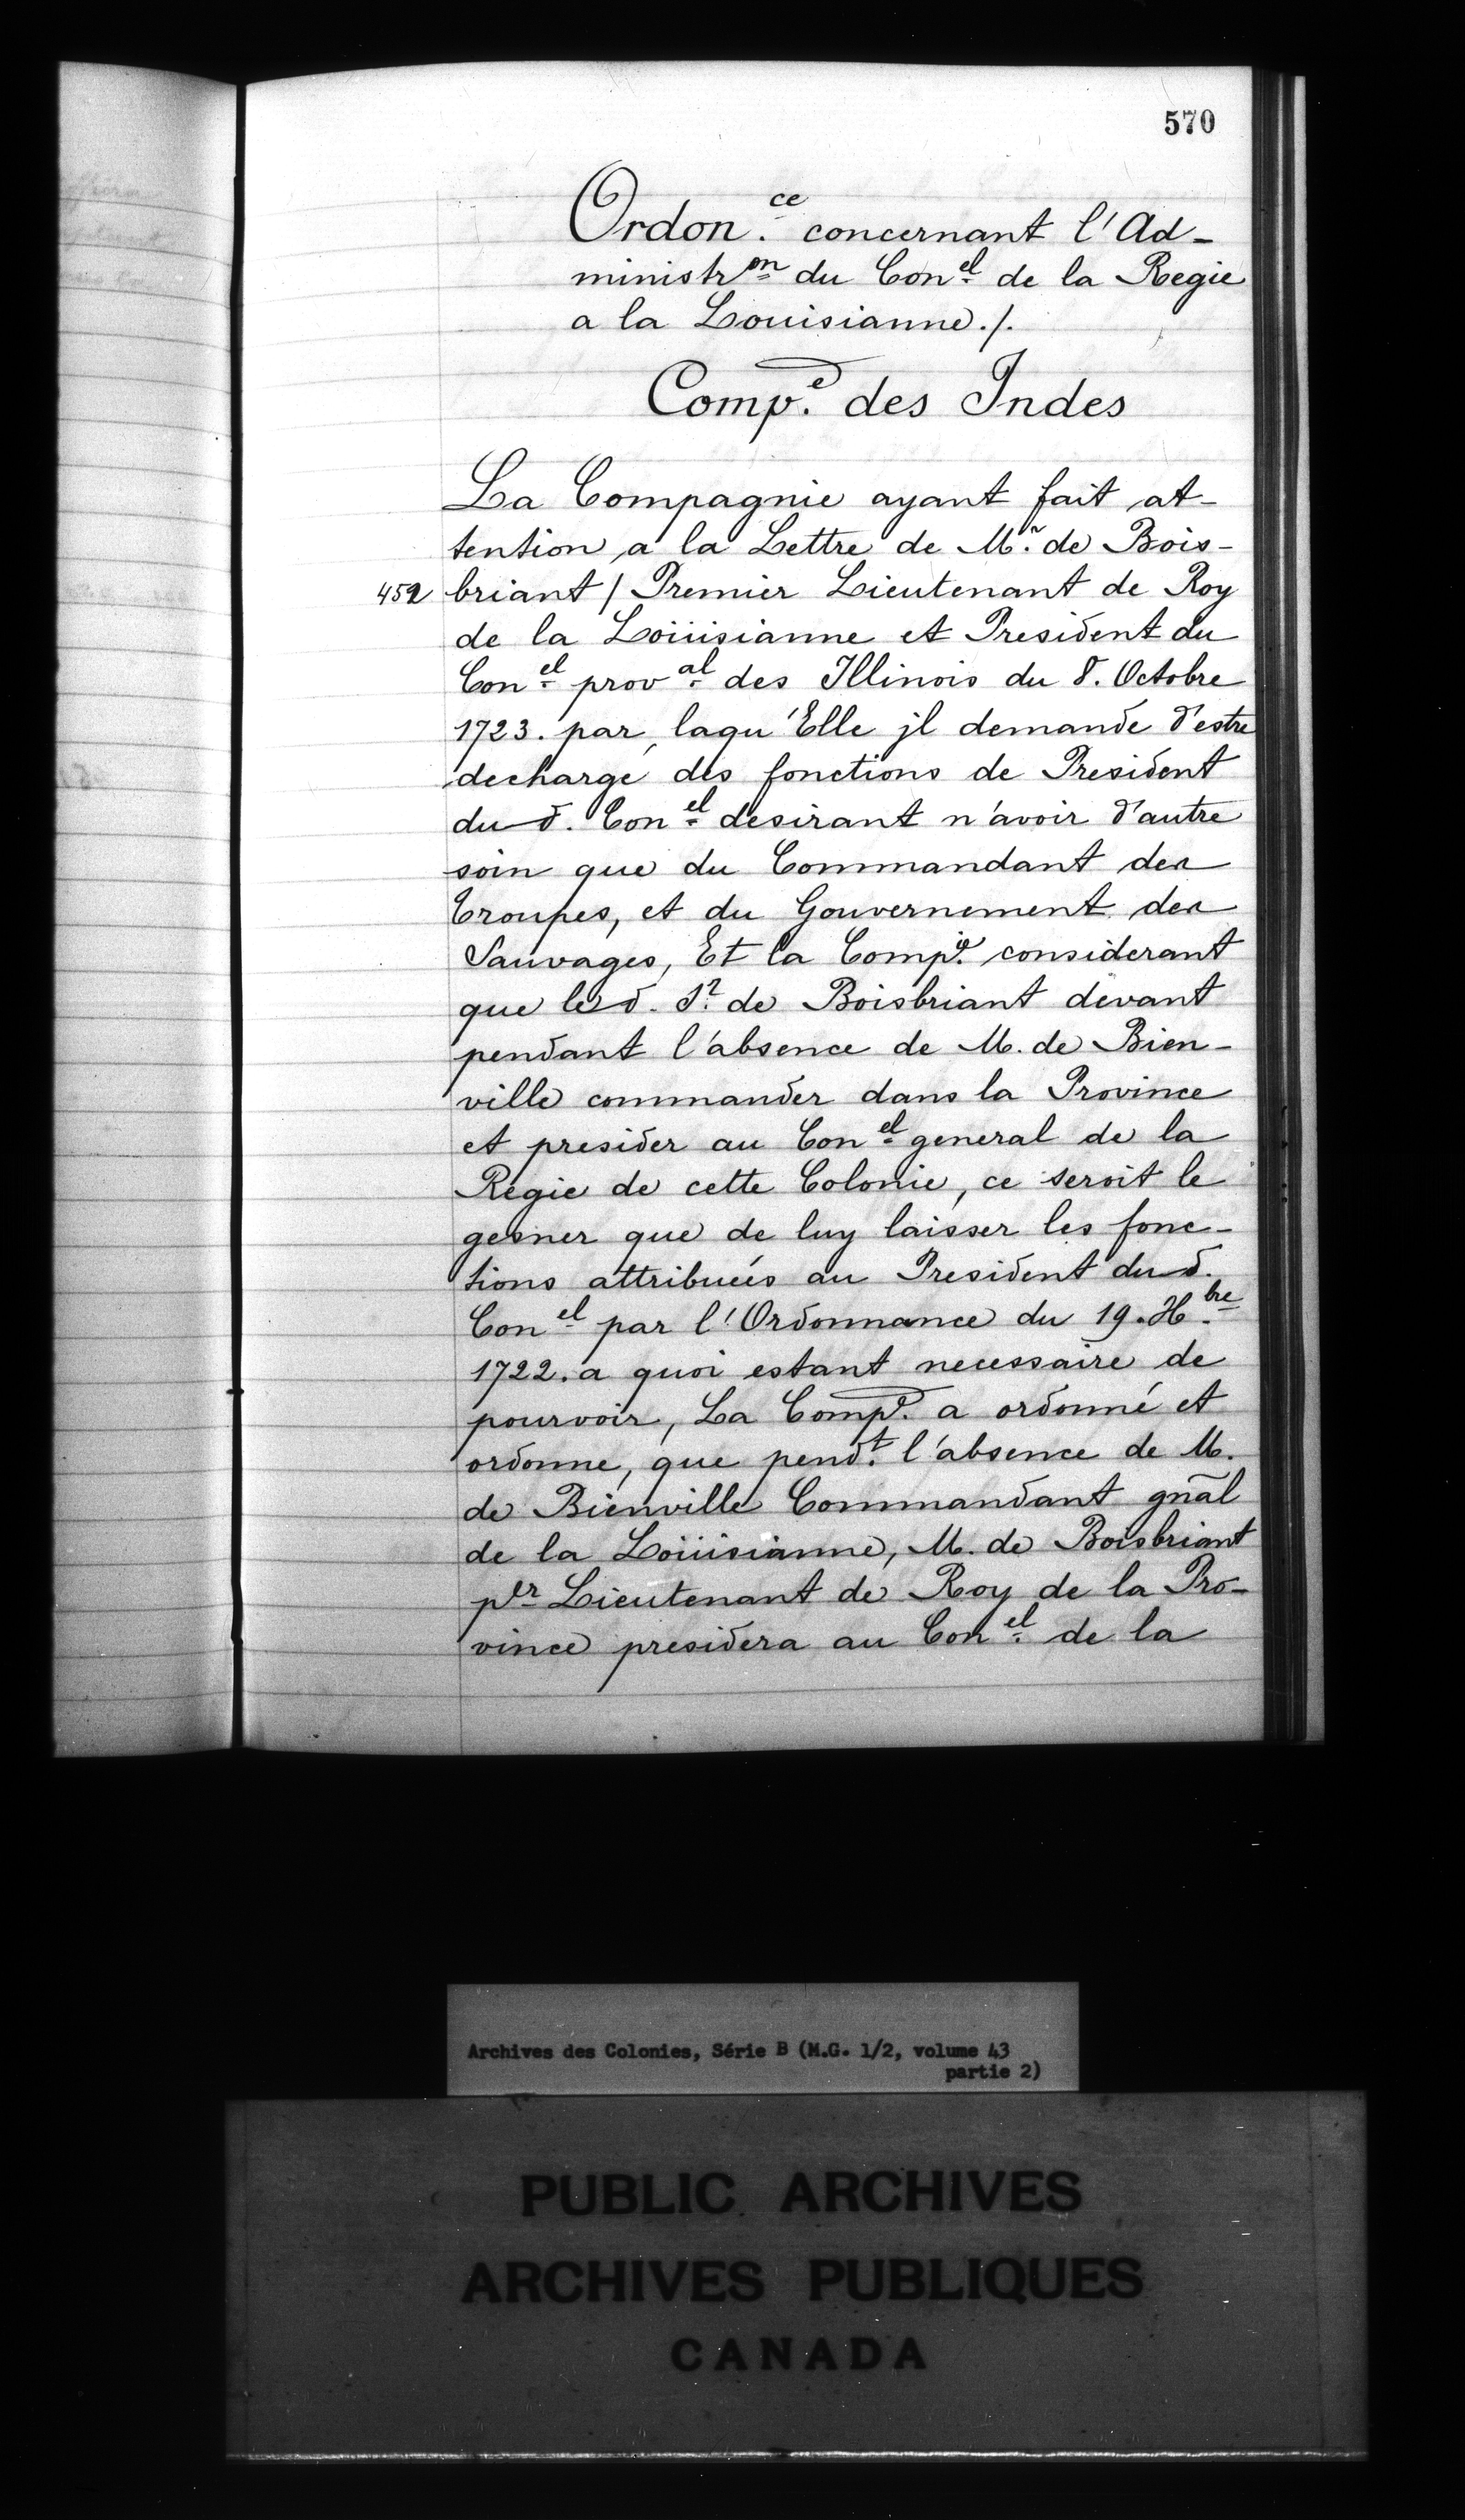 570
Ordon.ce concernant l'Ad-
ministron du Conel de la Regie
a la Louisianne./.
Compe. des Indes
La Compagnie ayant fait at-
tention a la Lettre de Mr. de Bois-
452 briant / Premier Lieutenant de Roy
de la Loüisianne et President du
Conel proval des Illinois du 8. Octobre
1723. par laqu'Elle jl demande d'estre
dechargé des fonctions de President
du d. Conel desirant n'avoir d'autre
soin que du Commandant des
Troupes, et du Gouvernement des
Sauvages, Et la Compie. considerant
que le d. Sr. de Boisbriant devant
pendant l'absence de M. de Bien-
ville commander dans la Province
et presider au Conel general de la
Regie de cette Colonie, ce seroit le
gesner que de luy laisser les fonc-
tions attribuées au President du d.
Conel par l'Ordonnance du 19. Xbre
1722. a quoi estant necessaire de
pourvoir, La Compe. a ordonné et
ordonne, que pendt. l'absence de M.
de Bienville Commandant gnãl
de la Loüisianne, M. de Boisbriant
per Lieutenant de Roy de la Pro-
vince presidera au Conel de la
Archives des Colonies, Série B (M.G. 1/2, volume 43
partie 2)
PUBLIC ARCHIVES
ARCHIVES PUBLIQUES
CANADA